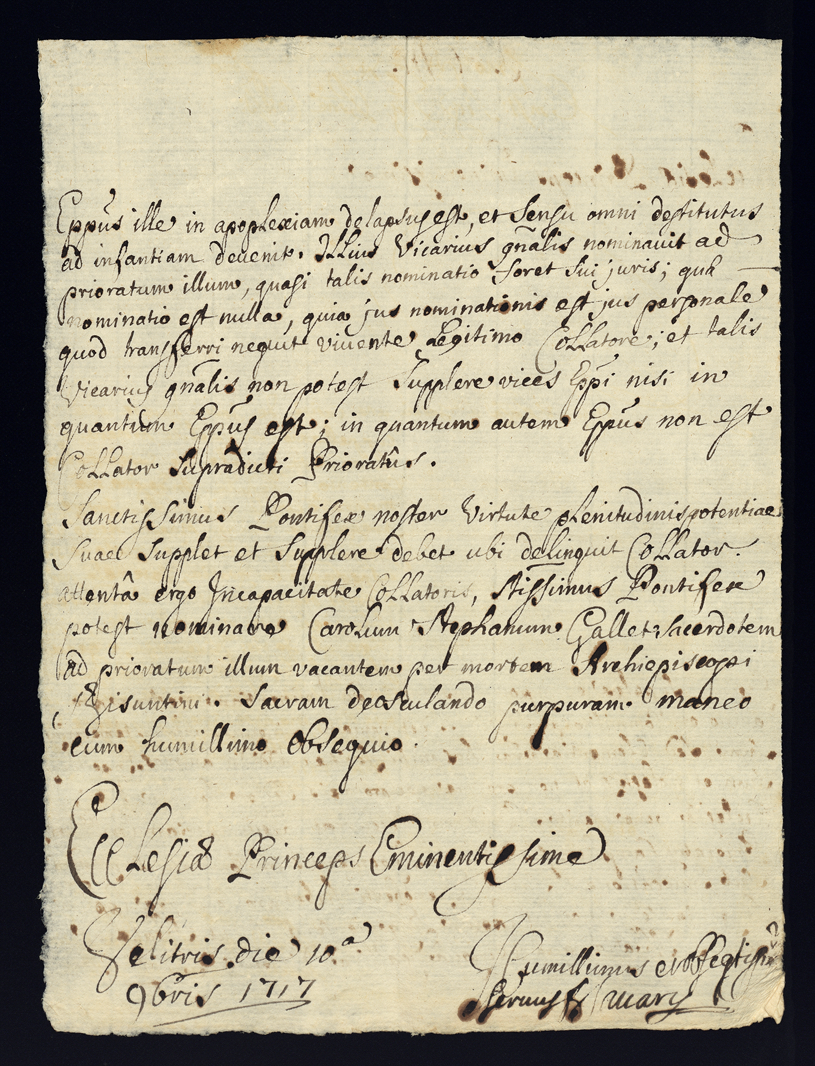 Eppūs ille in apoplexiam delapsus est, et sensu omni destitutus
ad infantiam devenit. Illius Vicarius gn̄alis nominauit ad
prioratum illum, quasi talis nominatio foret sui juris; quæ
nominatio est nulla, quia jus nominationis est jus personale
quod transferri nequit viuente Legitimo Collatore; et talis
Vicarius gn̄alis non potest Supplere vices Epp̄i nisi in
quantum Eppūs est; in quantum autem Eppūs non est
Collator supradicti Prioratûs.
Sanctissimus Pontifex noster Virtute plenitudinis potentiae
suae supplet et supplere debet ubi delinquit Collator.
attentâ ergo Incapacitate Collatoris, Stissimus Pontifex
potest nominare Carolum Stephanum Gallet sacerdotem
ad prioratum illum vacantem per mortem Archiepiscopi
Bisuntini. Sacram deosculando purpuram maneo
cum humillimo obsequio.
Ecclesiæ Princeps Eminentissime
Velitris die 10a
9bris 1717
Humillimus et
servus